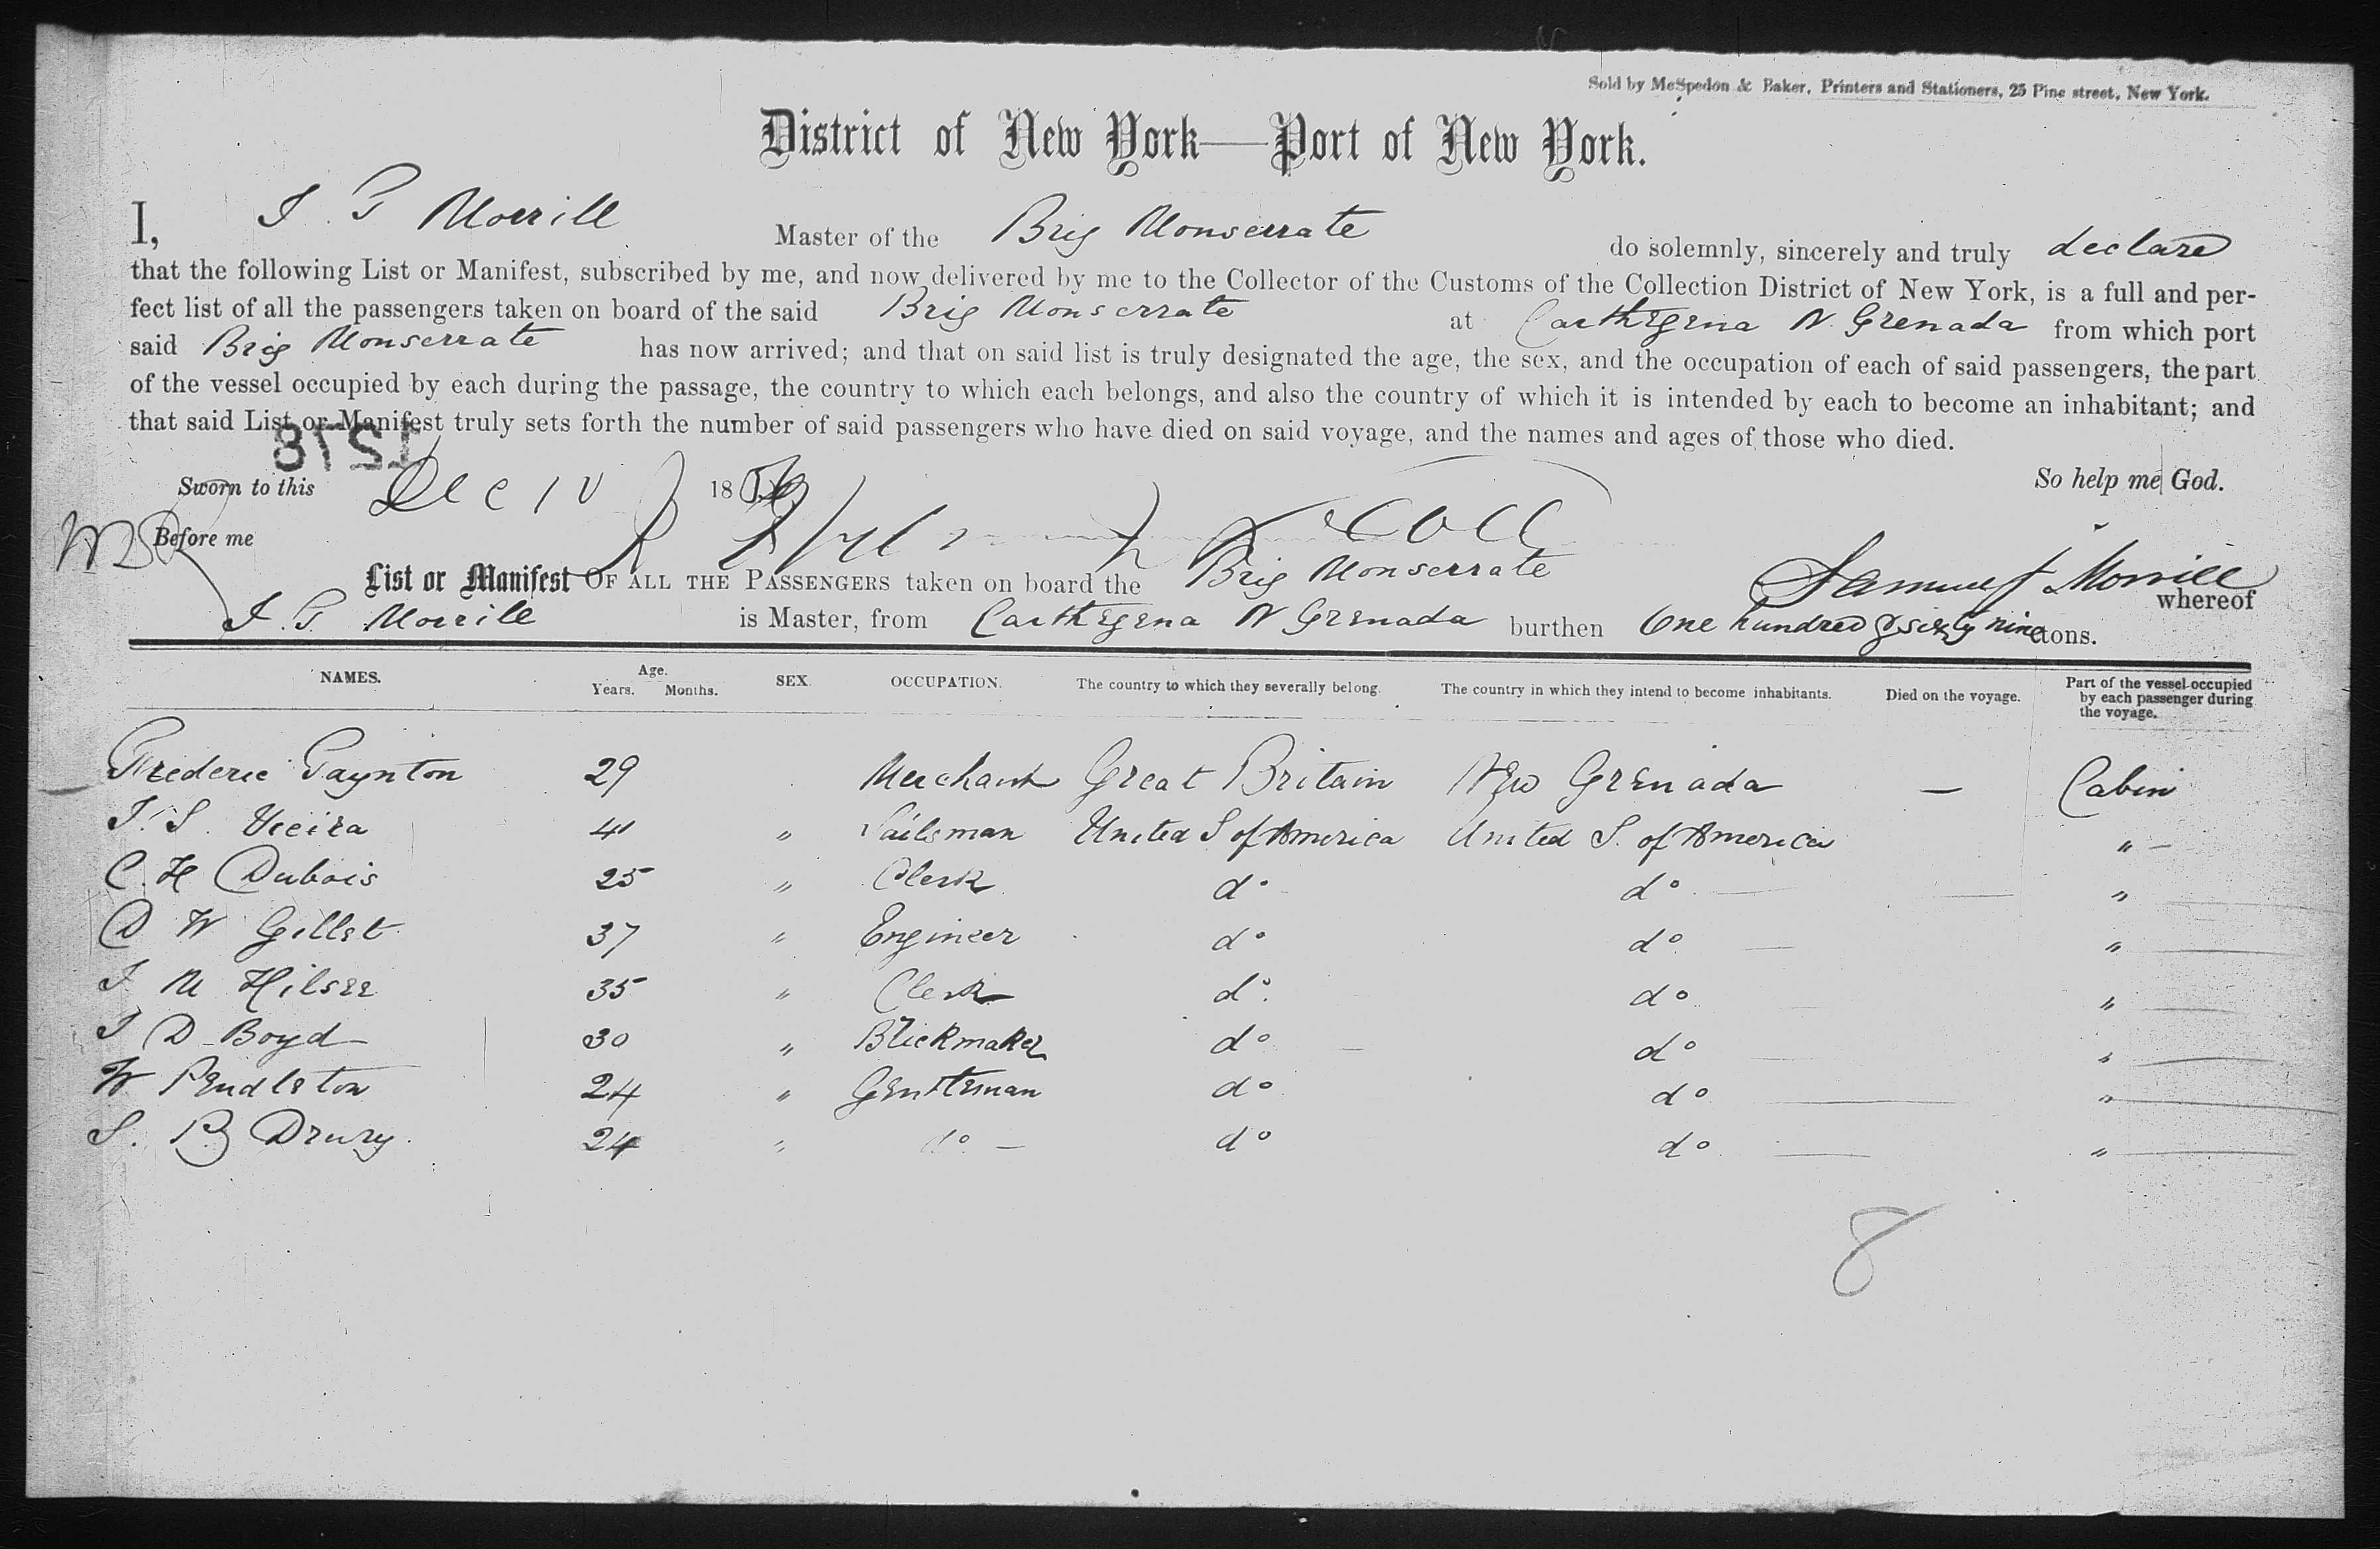 Sold by McSpedon & Baker, Printers and Stationers, 25 Pine street, New York.
District of New York—Port of New York.
I, S. G Morrill Master of the Brig Monserrate do solemnly, sincerely and truly declare
that the following List or Manifest, subscribed by me, and now delivered by me to the Collector of the Customs of the Collection District of New York, is a full and per-
fect list of all the passengers taken on board of the said Brig Monserrate at Carthegena N. Grenada from which port
said Brig Monserrate has now arrived; and that on said list is truly designated the age, the sex, and the occupation of each of said passengers, the part
of the vessel occupied by each during the passage, the country to which each belongs, and also the country of which it is intended by each to become an inhabitant; and
that said List or Manifest truly sets forth the number of said passengers who have died on said voyage, and the names and ages of those who died.
1218
Sworn to this Dec 10 18 So help me God.
Before me Coll
Samuel Morrill
List or Manifest OF ALL THE PASSENGERS taken on board the Brig Monserrate whereof
S. G. Morrill is Master, from Carthegena N Grenada burthen One hundred & sixty nine tons.
NAMES. Age. Years. Months. SEX. OCCUPATION. The country to which they severally belong. The country in which they intend to become inhabitants. Died on the voyage. Part of the vessel occupied by each passenger during the voyage.
Frederic Paynton 29 Merchant Great Britain New Grenada — Cabin
J. S. Vieira 41 " Sailsman United S of America United S. of America " —
C. H Dubois 25 " Clerk do do "
D W Gillet 37 " Engineer do do "
J M Hilser 35 " Clerk do do "
J D Boyd 30 " Brickmaker do do "
W Pendleton 24 " Gentleman do do "
S. B Drury. 24 " do — do do "
8